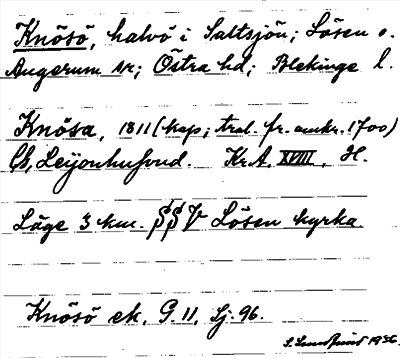 Knösö, halvö i Saltsjön; Lösen o.
Augerum sr; Östra hd; Blekinge l.
Knösa, 1811 (kap; trol. fr. omkr. 1700)
Ch. Leijonhufvud. Kr.A. XVIII. H.
Läge 3 km. SSV Lösen kyrka.
Knösö ek. G. 11, Sj. 96.
1936